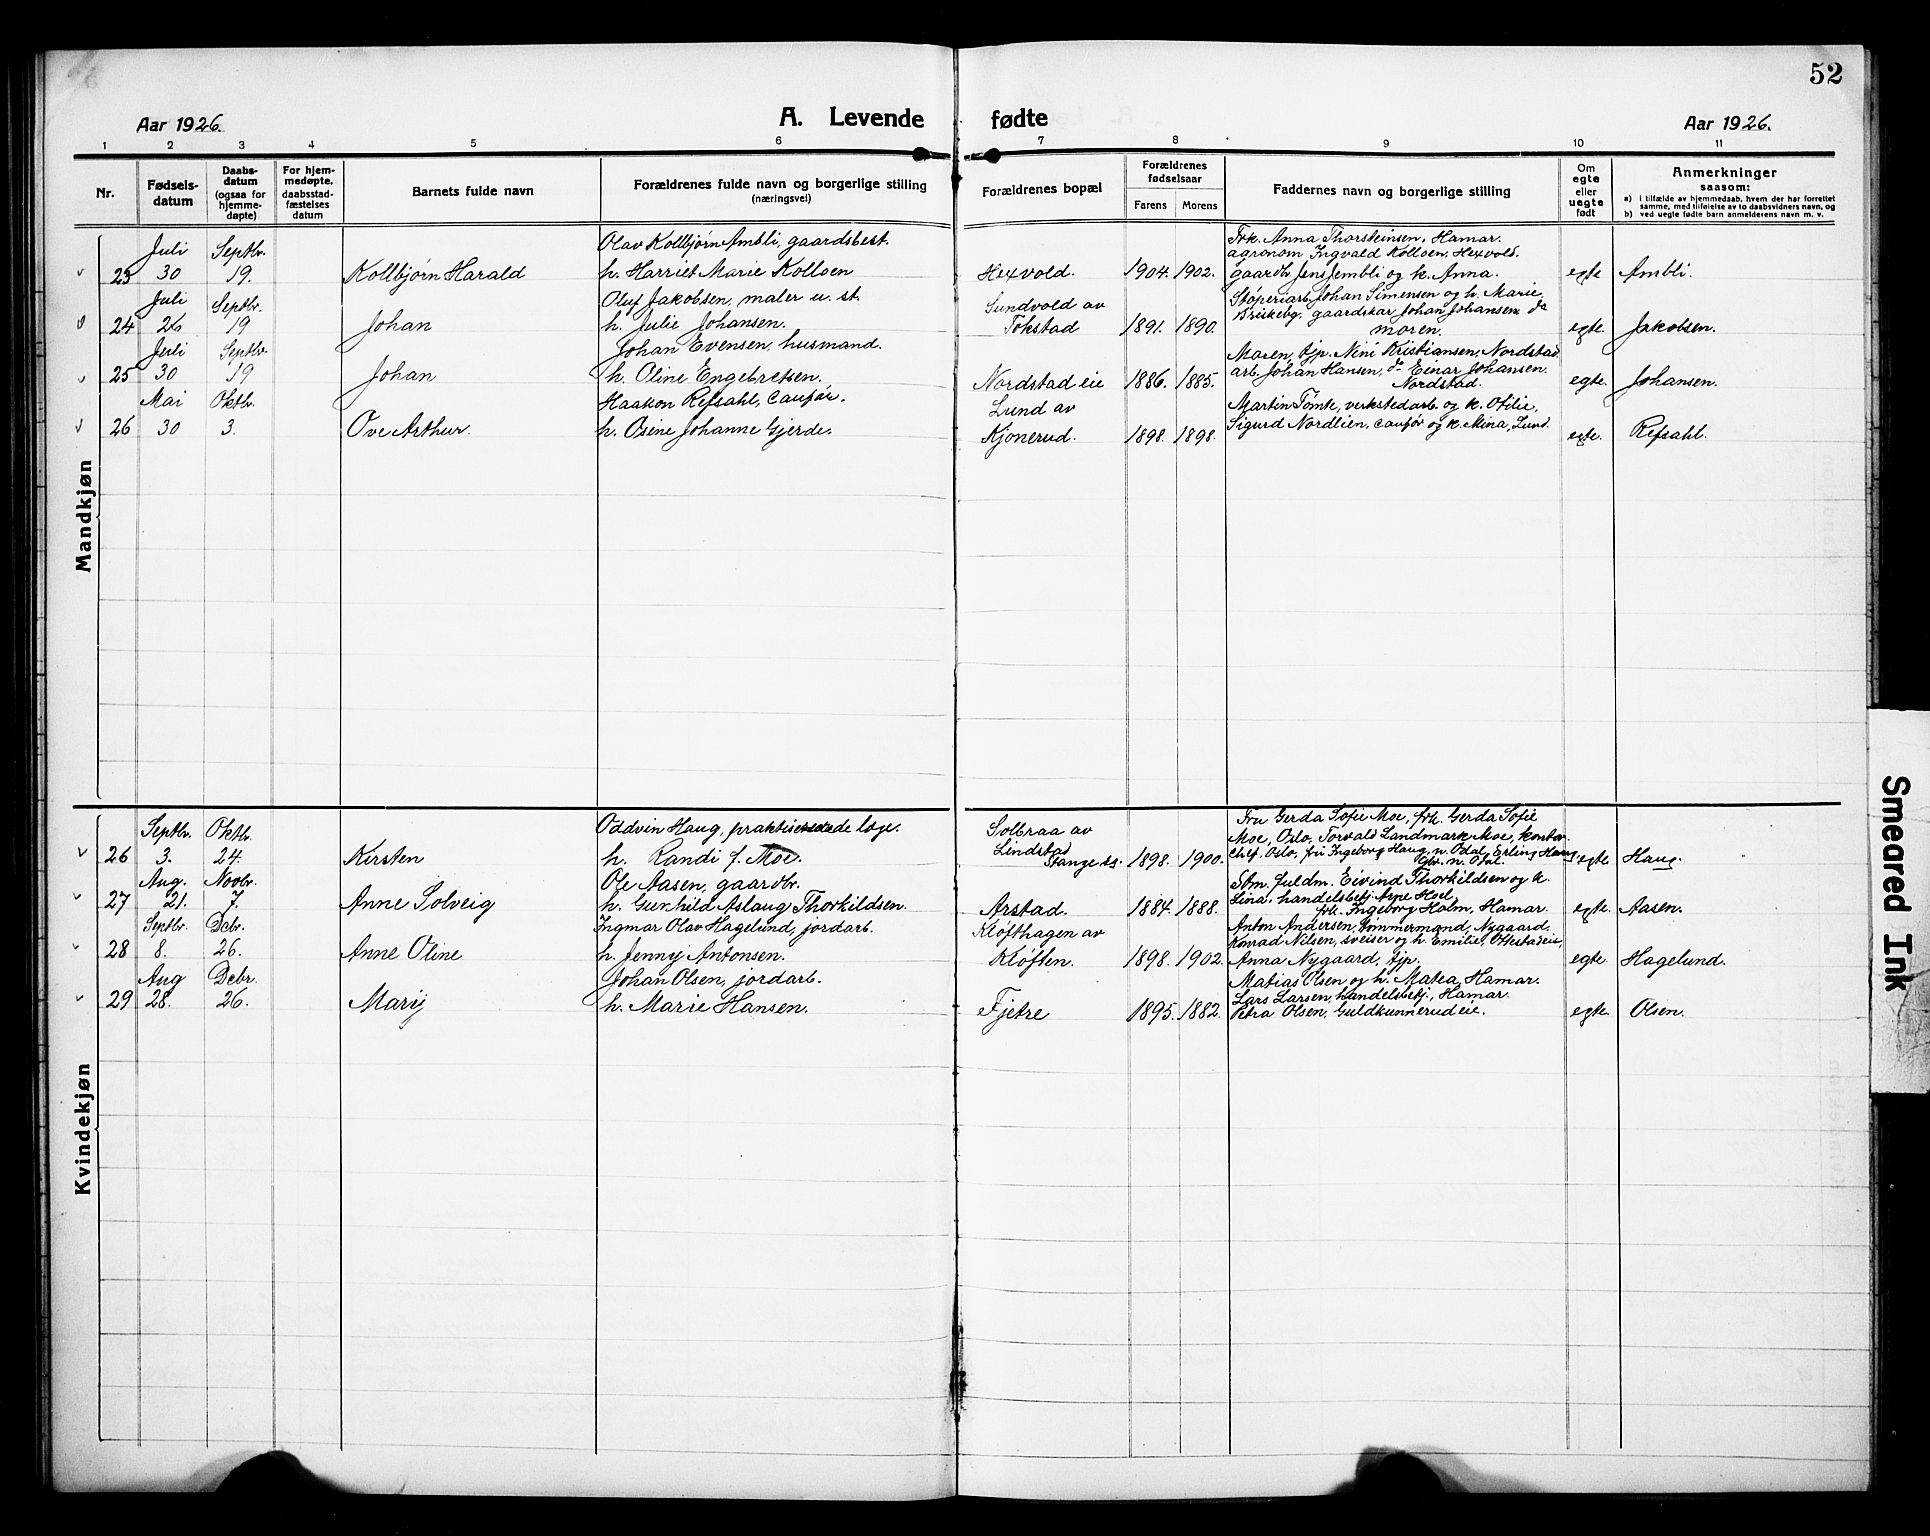 52
Aar 1926.
A. Levende fødte
Aar 1926.
1 2 3 4 5 6 7 8 9 10 11
Nr.
Fødsels-
datum
Daabs-
datum
(ogsaa for
hjemme-
døpte)
For hjem-
medøpte,
daabsstad-
fæstelses
datum
Barnets fulde navn
Forældrenes fulde navn og borgerlige stilling
(næringsvei)
Forældrenes bopæl
Forældrenes
fødselsaar
Farens Morens
Faddernes navn og borgerlige stilling
Om
egte
eller
uegte
født
Anmerkninger
saasom:
a) i tilfælde av hjemmedaab, hvem der har forrettet
samme, med tilføielse av to daabsvidners navn, og
b) ved uegte fødte barn anmelderens navn m. v.
Mandkjøn
Juli Septbr. Olav Kolbjørn Ambli, gaardsbest. Frk. Anna Thorsteinsen, Hamar.
agronom Ingvald Kolloen, Hexvold.
23 30 19. Kolbjørn Harald h. Harriet Marie Kolloen Hexvold. 1904. 1902. gaardb. Jens Jembli og k. Anna. egte Ambli.
Juli Septbr. Oluf Jakobsen, maler u. st. Sundvold av Støperiarb. Johan Simensen og h. Marie
Briskebg. gaardskar Johan Johansen
24 26 19 Johan h. Julie Johansen. Tokstad 1891. 1890. moren. egte. Jakobsen.
Juli Septbr Johan Evensen, husmand. Maren, tjp. Nini Kristiansen, Nordstad
arb. Johan Hansen, do Einar Johansen.
25 30 19 Johan h. Oline Engebretsen. Nordstad eie 1886. 1885. Nordstad. egte. Johansen.
Mai Oktbr. Haakon Refsahl, caufør. Lund av Martin Tømte, verkstedarb. og k. Otilie,
26 30 3. Ove Arthur. h. Osine Johanne Gjerde. Kjonerud. 1898. 1898. Sigurd Nordlien, caufør og k. Mina, Lund. egte. Refsahl.
Kvindekjøn
Septbr. Oktbr. Oddvin Haug, praktiserende læge. Solbraa av Fru Gerda Sofie Moe, frk. Gerda Sofie
Lindstad Moe, Oslo, Torvald Landmark Moe, kontor
26 3. 24. Kirsten h. Randi f. Moe. Stange sg. 1898. 1900. chef, Oslo, fru Ingeborg Haug, n. Odal, Erling Haug egte Haug.
gbr. n. Odal.
Aug. Novbr. Ole Aasen, gaardbr. Tøm. fuldm. Eivind Thorkildsen og k.
27 21. 7. Anne Solveig h. Gunhild Aslaug Thorkildsen. Arstad. 1884. 1888. Lina, handelsbetj. Arne Hoel,
frk. Ingeborg Holm, Hamar. egte. Aasen.
Septbr. Dcbr. Ingmar Olav Hagelund, jordarb. Kløfthagen av Anton Andersen, tømmermand, Nygaard.
Konrad Nilsen, sveiser og h. Emilie, Ottestadeie,
28 8. 26. Anne Oline h. Jenny Antonsen. Kløften. 1898. 1902. Anna Nygaard, tjp. egte Hagelund.
Aug Dcbr. Johan Olsen, jordarb. Matias Olsen og h. Matea, Hamar.
Lars Larsen, handelsbetj., Hamar.
29 28. 26. Mary h. Marie Hansen. Fjetre 1895. 1882. Petra Olsen, Guldkunnerudeie. egte. Olsen.
Smeared Ink